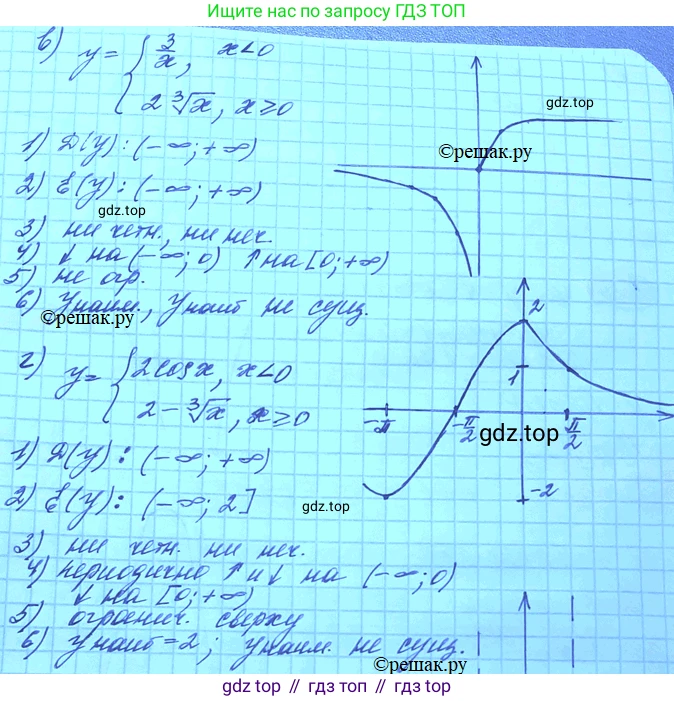 Ищите ещё по запросу ГДЗ ТОП
в) y = { 3/x, x<0
2∛x, x≥0
gdz.top
©решак.ру
1) D(y): (-∞; +∞)
2) E(y): (-∞; +∞)
gdz.top
3) ни четн., ни неч.
4) ↓ на (-∞; 0) ↑ на [0; +∞)
5) не огр.
6) Yнаим., Yнаиб не сущ.
©решак.ру
г) y = { 2cosx, x<0
2-∛x, x≥0
2
1
-π
-π/2
π/2
-2
gdz.top
1) D(y): (-∞; +∞)
2) E(y): (-∞; 2]
gdz.top
3) ни четн. ни неч.
4) периодично ↑ и ↓ на (-∞; 0)
↓ на [0; +∞)
5) огранич. сверху
6) Yнаиб = 2; Yнаим. не сущ.
©решак.ру
gdz.top // гдз топ // гдз.топ